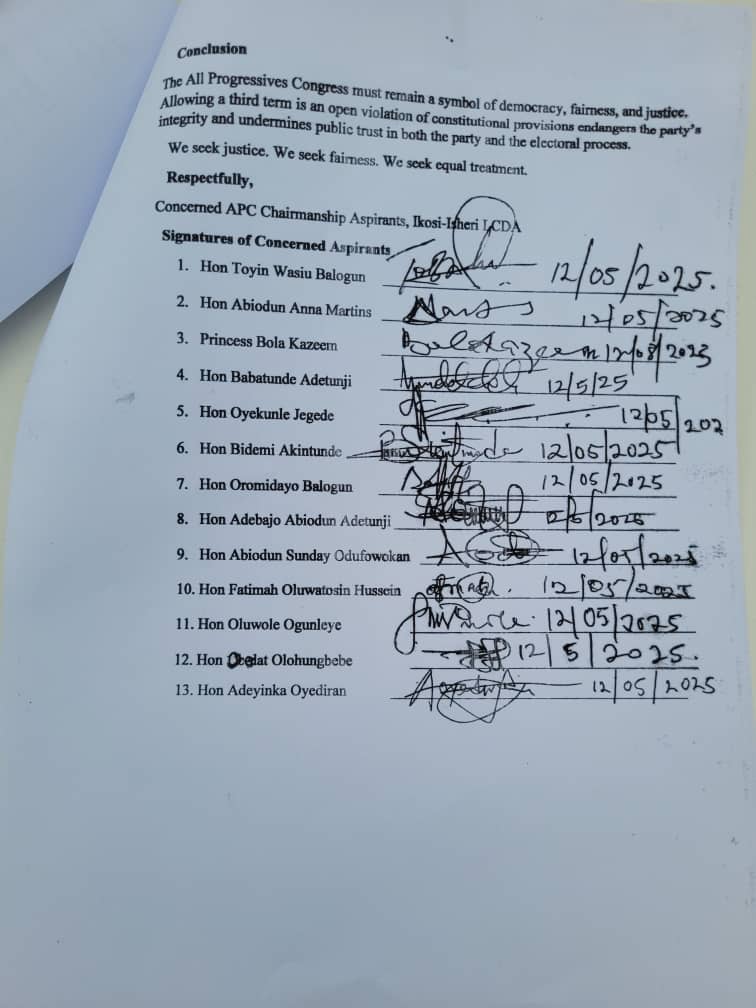 Conclusion
The All Progressives Congress must remain a symbol of democracy, fairness, and justice.
Allowing a third term is an open violation of constitutional provisions endangers the party's
integrity and undermines public trust in both the party and the electoral process.
We seek justice. We seek fairness. We seek equal treatment.
Respectfully,
Concerned APC Chairmanship Aspirants, Ikosi-Isheri LCDA
Signatures of Concerned Aspirants
1. Hon Toyin Wasiu Balogun 12/05/2025.
2. Hon Abiodun Anna Martins 12/05/2025
3. Princess Bola Kazeem
4. Hon Babatunde Adetunji 12/5/25
5. Hon Oyekunle Jegede 12/05/202
6. Hon Bidemi Akintunde 12/05/2025
7. Hon Oromidayo Balogun 12/05/2025
8. Hon Adebajo Abiodun Adetunji
9. Hon Abiodun Sunday Odufowokan 12/05/2025
10. Hon Fatimah Oluwatosin Hussein 12/05/2025
11. Hon Oluwole Ogunleye 12/05/2025
12. Hon Olohungbebe 12/5/2025.
13. Hon Adeyinka Oyediran 12/05/2025